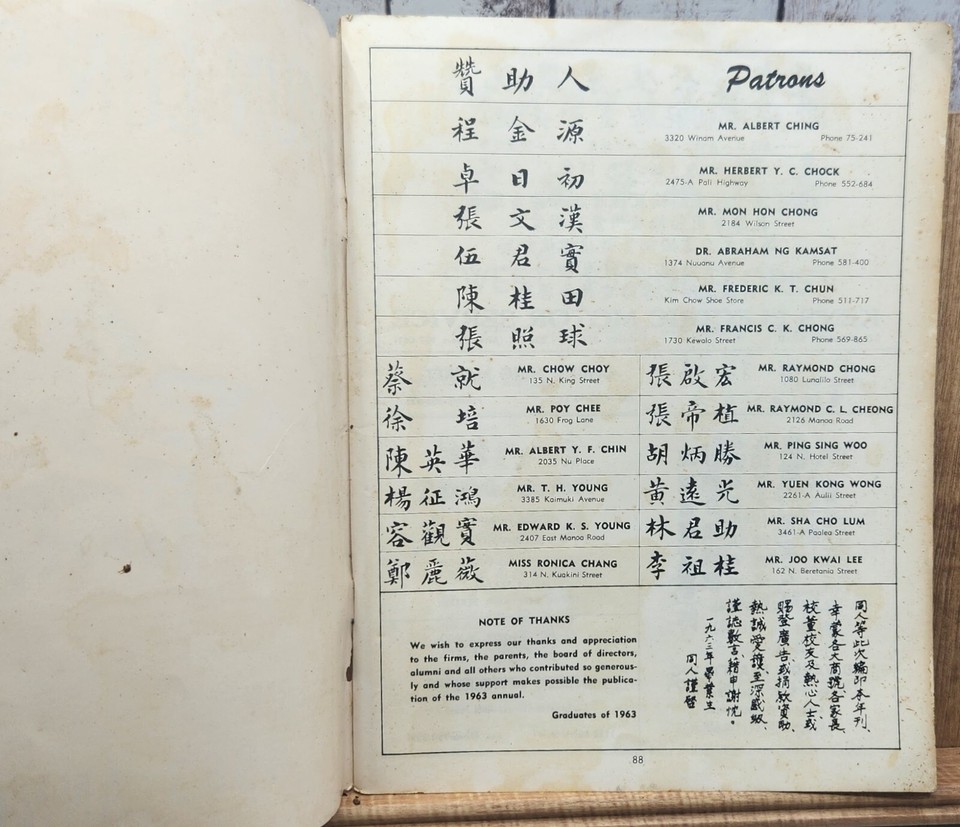 贊助人 Patrons
程金源 MR. ALBERT CHING
3320 Winam Avenue Phone 75-241
卓日初 MR. HERBERT Y. C. CHOCK
2475-A Pali Highway Phone 552-684
張文漢 MR. MON HON CHONG
2184 Wilson Street
伍君實 DR. ABRAHAM NG KAMSAT
1374 Nuuanu Avenue Phone 581-400
陳桂田 MR. FREDERIC K. T. CHUN
Kim Chow Shoe Store Phone 511-717
張照球 MR. FRANCIS C. K. CHONG
1730 Kewalo Street Phone 569-865
蔡就 MR. CHOW CHOY
135 N. King Street
張啟宏 MR. RAYMOND CHONG
1080 Lunalilo Street
徐培 MR. POY CHEE
1630 Frog Lane
張帝植 MR. RAYMOND C. L. CHEONG
2126 Manoa Road
陳英華 MR. ALBERT Y. F. CHIN
2035 Nu Place
胡炳勝 MR. PING SING WOO
124 N. Hotel Street
楊征鴻 MR. T. H. YOUNG
3385 Kaimuki Avenue
黃遠光 MR. YUEN KONG WONG
2261-A Aulii Street
容觀寶 MR. EDWARD K. S. YOUNG
2407 East Manoa Road
林君助 MR. SHA CHO LUM
3461-A Paalea Street
鄭麗薇 MISS RONICA CHANG
314 N. Kuakini Street
李祖桂 MR. JOO KWAI LEE
162 N. Beretania Street
NOTE OF THANKS
We wish to express our thanks and appreciation
to the firms, the parents, the board of directors,
alumni and all others who contributed so generous-
ly and whose support makes possible the publica-
tion of the 1963 annual.
Graduates of 1963
同人等此次編印本年刊、
幸蒙各大商號、各家長、
校董校友及熱心人士、或
賜登廣告、或捐欵資助、
熱誠愛護、至深感級、
謹誌數言、藉申謝忱。
一九六三年畢業生
同人謹啓
88